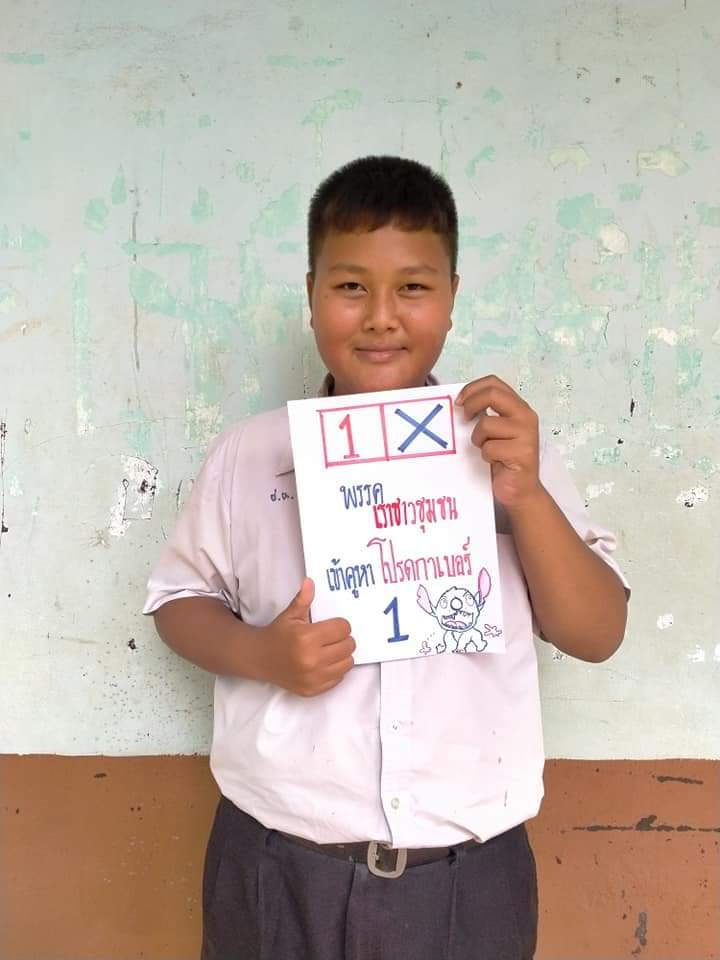 1 X
พรรค
เราชาวชุมชน
เข้าคูหา โปรดกาเบอร์
1